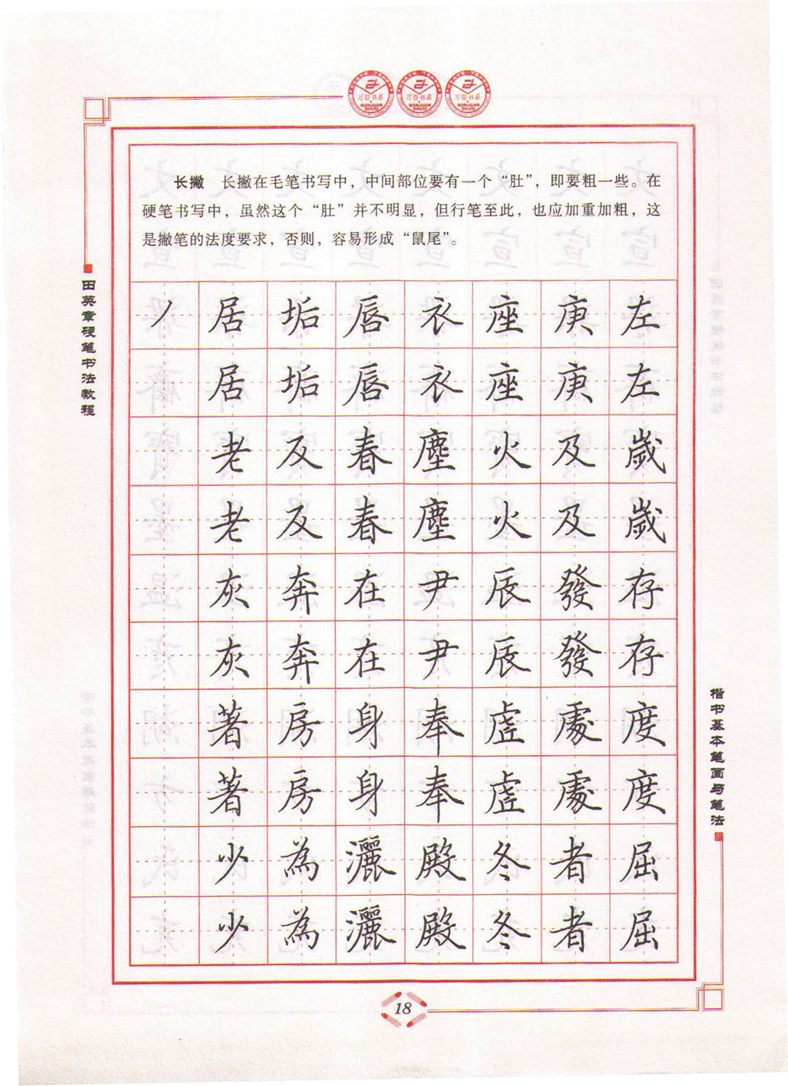 万卷书系 万卷书系 万卷书系
WANJUAN SHUXI WANJUAN SHUXI WANJUAN SHUXI
长撇　长撇在毛笔书写中，中间部位要有一个“肚”，即要粗一些。在
硬笔书写中，虽然这个“肚”并不明显，但行笔至此，也应加重加粗，这
是撇笔的法度要求，否则，容易形成“鼠尾”。
田英章硬笔书法教程
丿居垢唇衣座庚左
居垢唇衣座庚左
老反春塵火及歲
老反春塵火及歲
灰奔在尹辰發存
灰奔在尹辰發存
著房身奉虛處度
著房身奉虛處度
少為灑殿冬者屈
少為灑殿冬者屈
楷书基本笔画与笔法
18